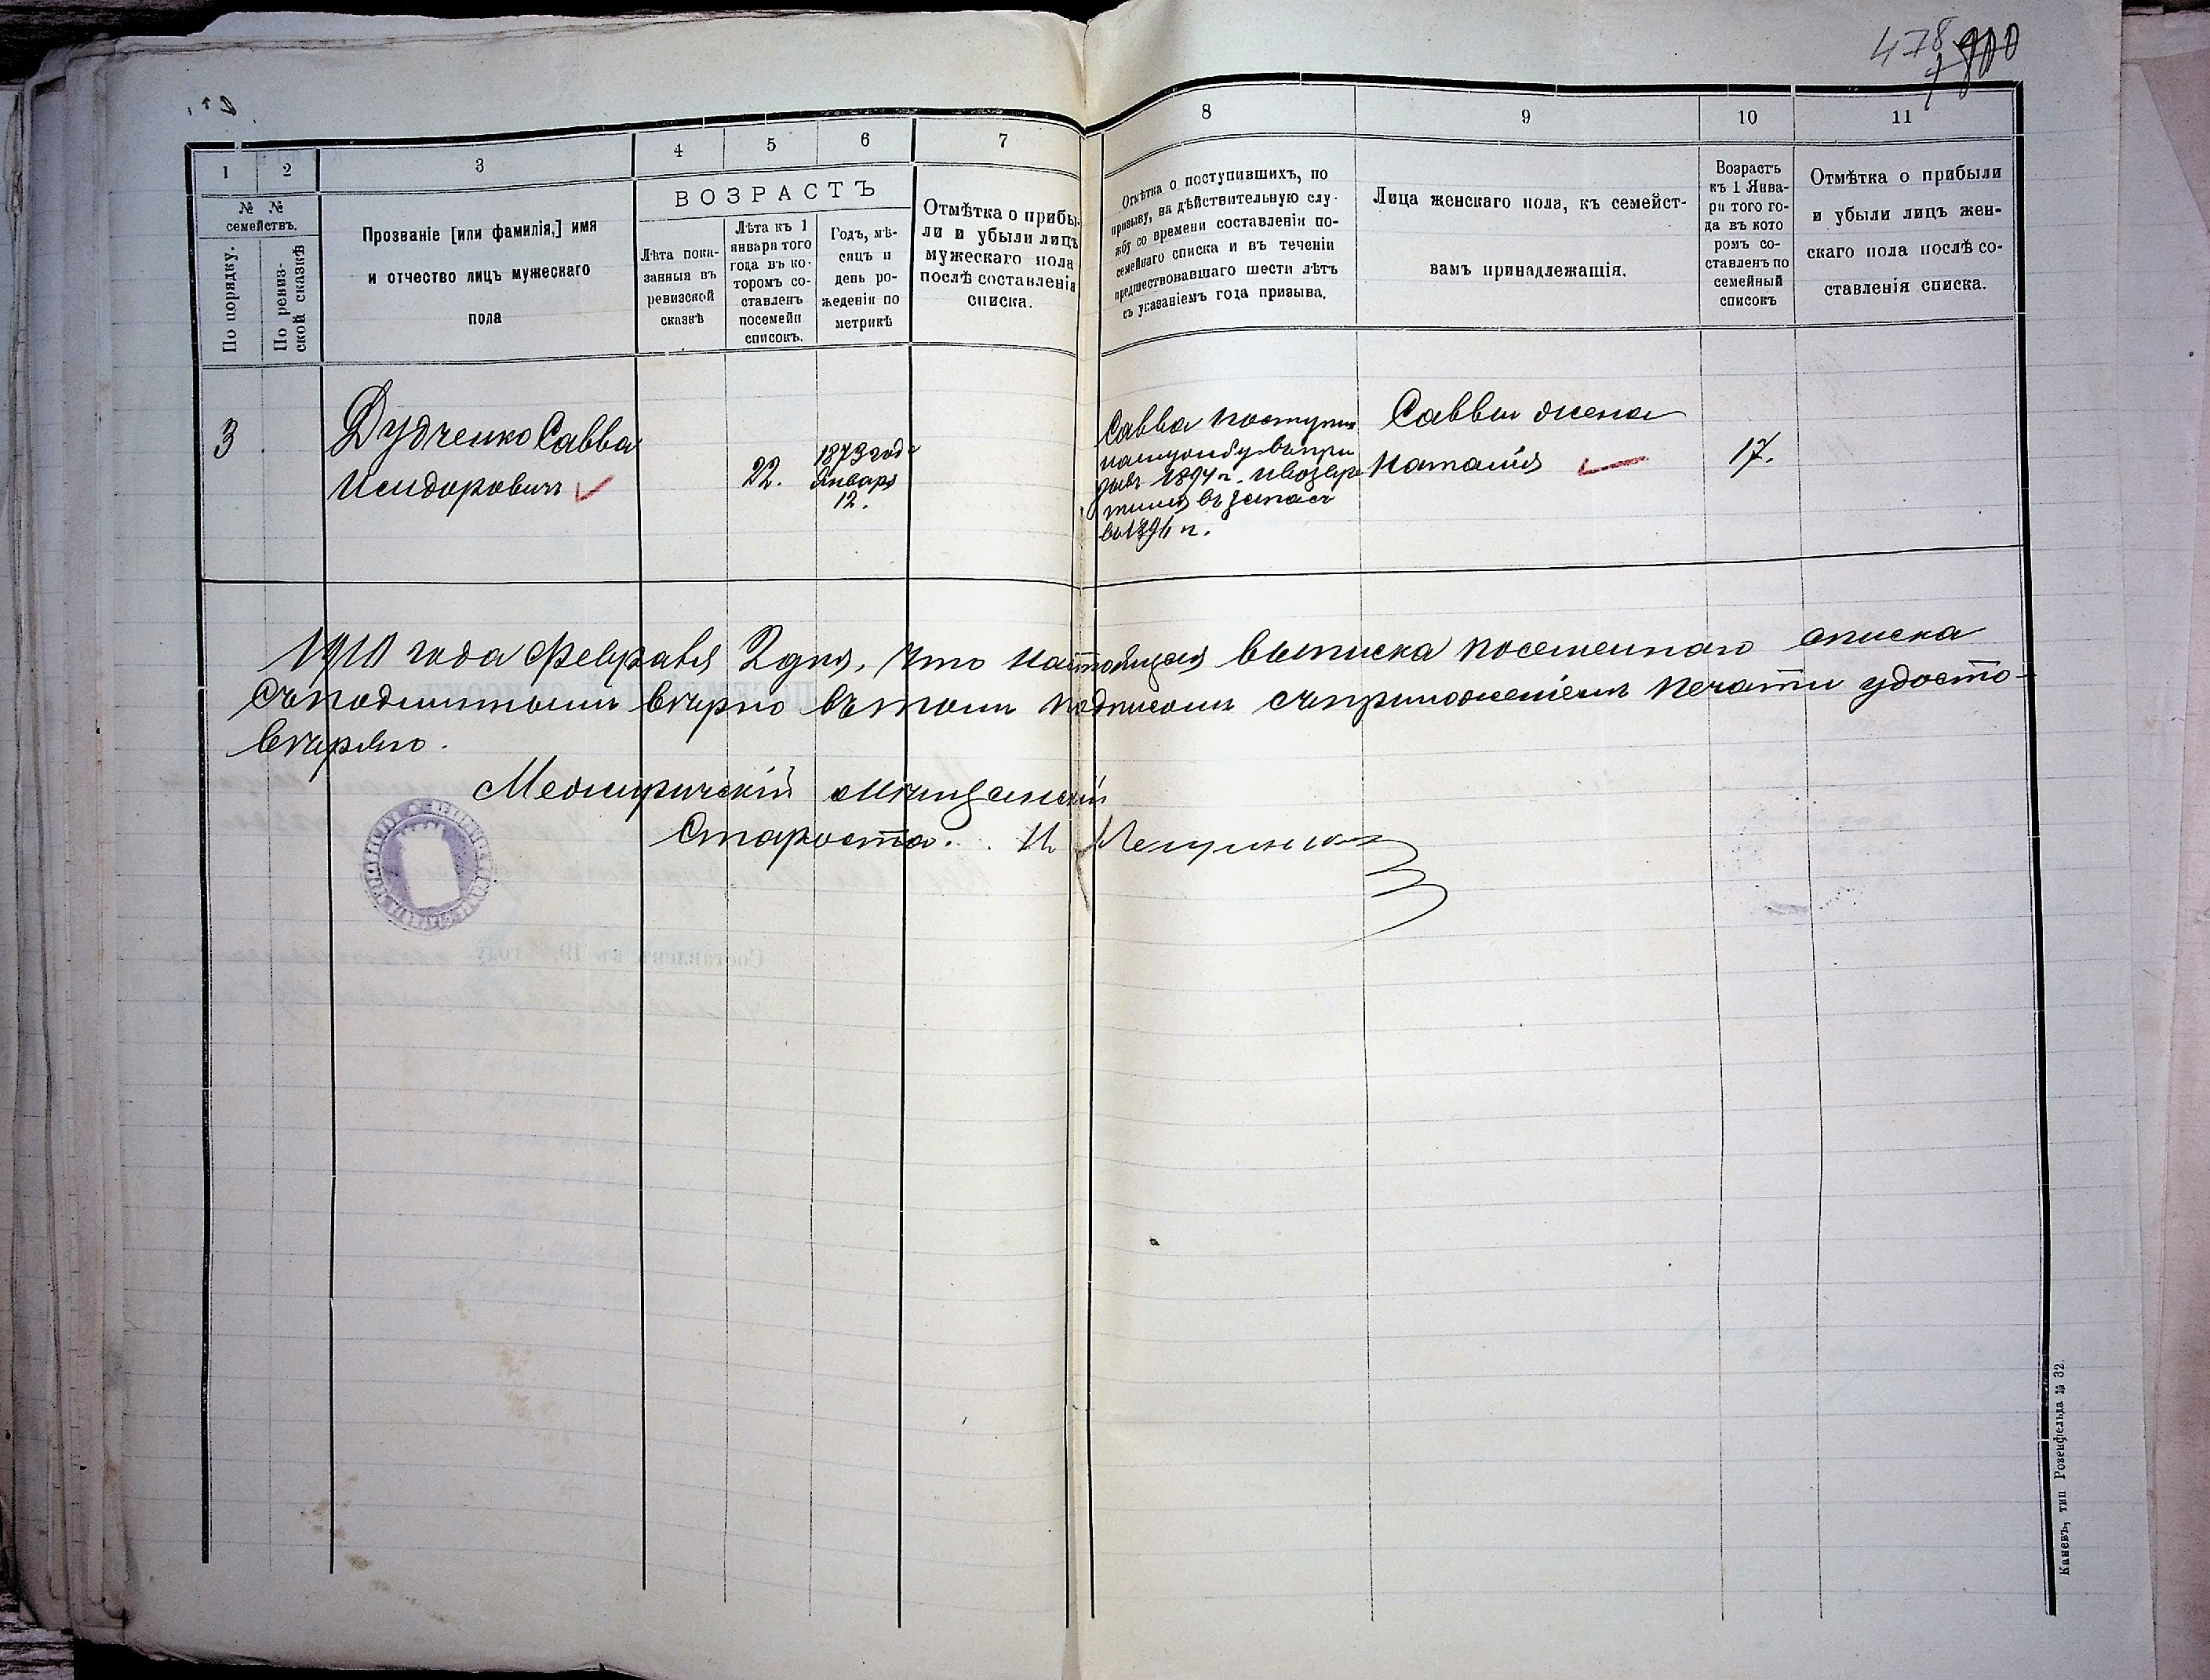 478
1
2
3
4
5
6
7
8
9
10
11
№ №
семействъ.
По порядку.
По ревиз-
ской сказкѣ
Прозваніе [или фамилія,] имя
и отчество лицъ мужескаго
пола
ВОЗРАСТЪ
Лѣта пока-
занныя въ
ревизской
сказкѣ
Лѣта къ 1
января того
года въ ко-
торомъ со-
ставленъ
посемейн
списокъ.
Годъ, мѣ-
сяцъ и
день ро-
жденія по
метрикѣ
Отмѣтка о прибы-
ли и убыли лицъ
мужескаго пола
послѣ составленія
списка.
Отмѣтка о поступившихъ, по
призыву, на дѣйствительную слу-
жбу со времени составленія по-
семейнаго списка и въ теченіи
предшествовавшаго шести лѣтъ
съ указаніемъ года призыва.
Лица женскаго пола, къ семейст-
вамъ принадлежащія.
Возрастъ
къ 1 Янва-
ря того го-
да въ кото
ромъ со-
ставленъ по
семейный
списокъ
Отмѣтка о прибыли
и убыли лицъ жен-
скаго пола послѣ со-
ставленія списка.
3
Дудченко Савва
Исидоровичъ
22.
1873 года
Январь
12.
Савва поступил
на службу въ при
зывъ 1894 г. и возвра
тился въ запасъ
в 189 г.
Саввы жена
Наталія
17.
1910 года Февраля 2 дня, что настоящая выписка посемейнаго списка
съ подлиннымъ вѣрно въ томъ подписомъ съ приложеніемъ печати удосто-
вѣряю.
Межиричскій мѣщанскій
Староста. И
Каневъ, тип Розенфельда № 32.